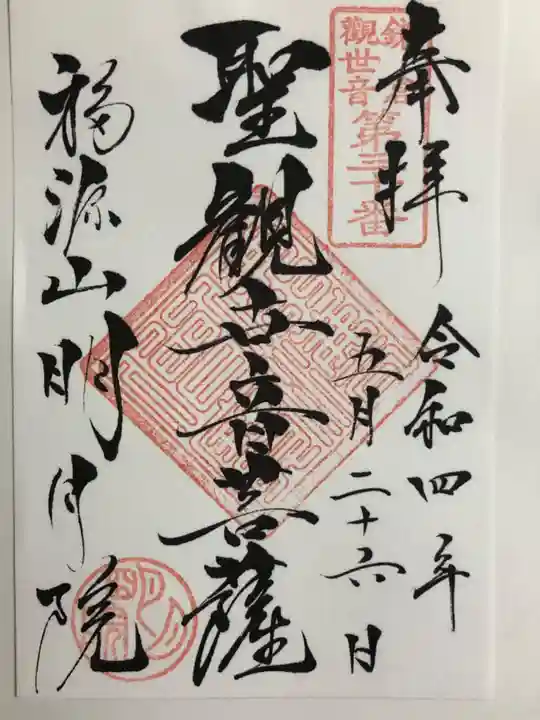 奉拝
令和四年
五月二十六日
鎌倉
觀世音
第三十番
聖觀世音菩薩
福源山明月院